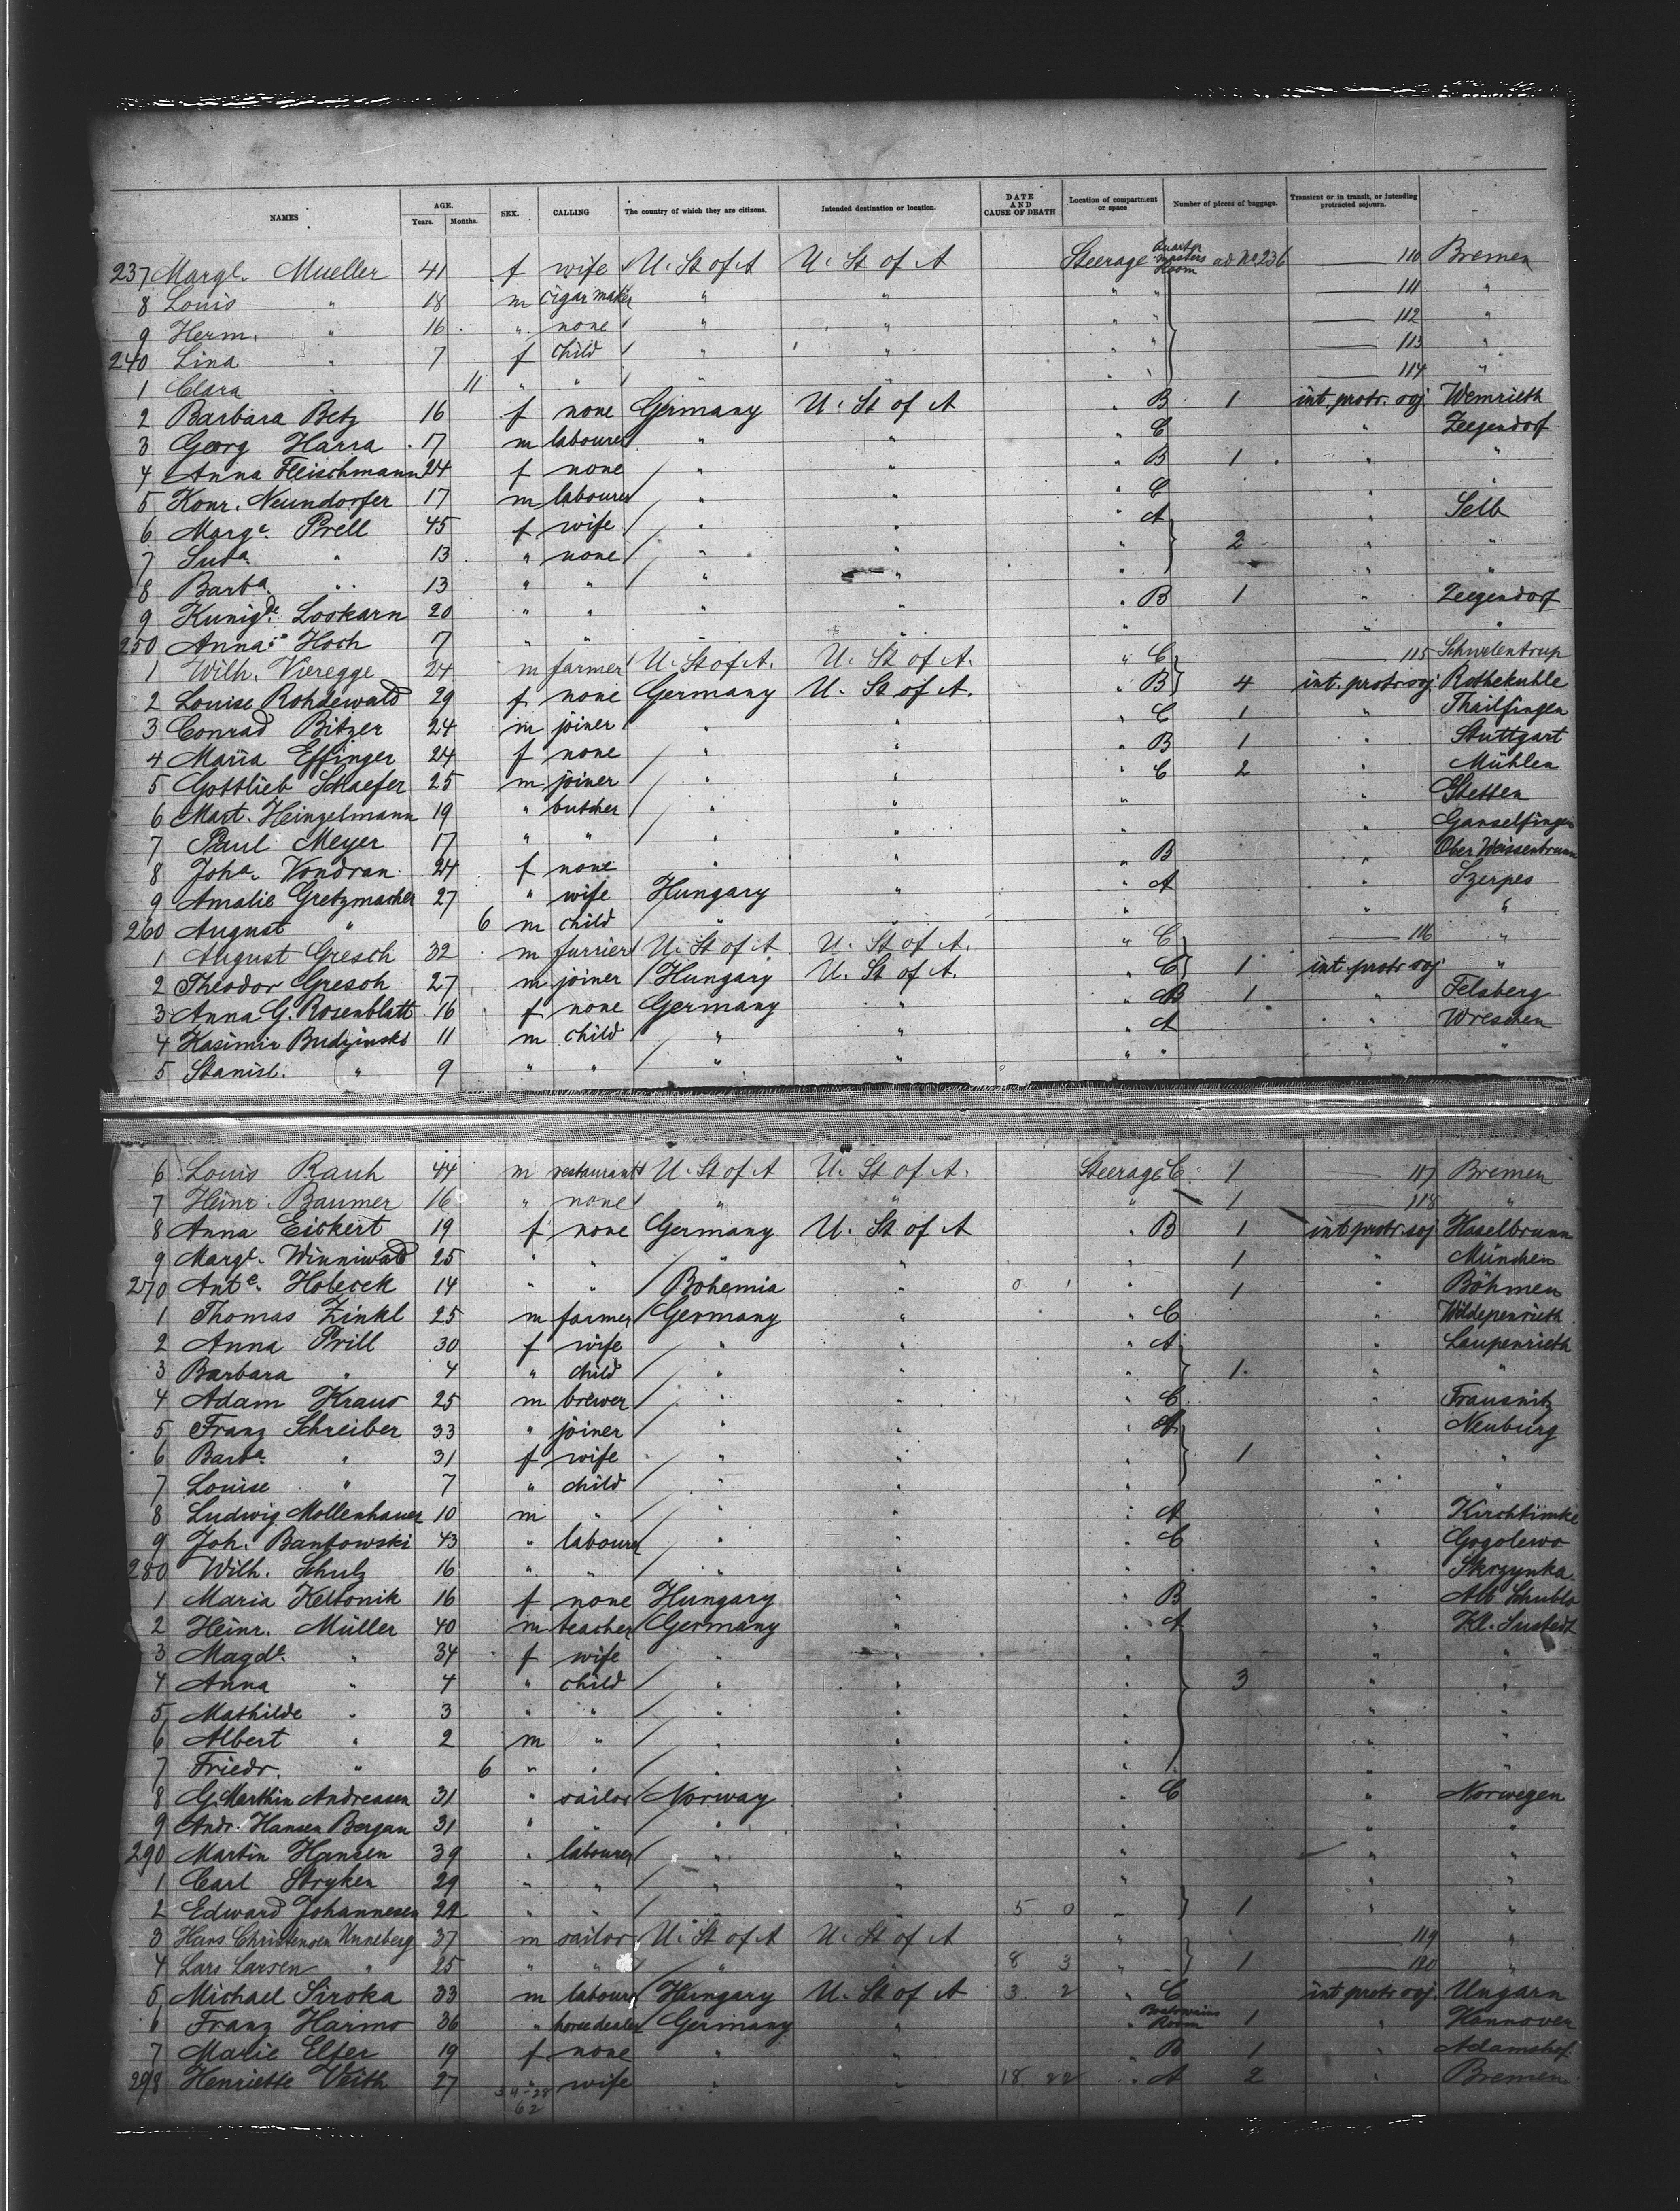 NAMES AGE. Years. Months. SEX. CALLING The country of which they are citizens. Intended destination or location. DATE AND CAUSE OF DEATH Location of compartment or space Number of pieces of baggage. Transient or in transit, or intending protracted sojourn.
237 Margt. Mueller 41 f wife U. St of A U. St of A Steerage Quarter masters Room ad No 236 — 110 Bremen
8 Louis " 18 m cigar maker " " " " — 111 "
9 Herm. " 16 " none " " " " — 112 "
240 Lina " 7 f child " " " " — 113 "
1 Clara " 11 " " " " " — 114 "
2 Barbara Betz 16 f none Germany U. St of A " B 1 int. protr. soj Wemrieth
3 Georg Harra 17 m labourer " " " C " Zeegendorf
4 Anna Fleischmann 24 f none " " " B 1 " "
5 Konr. Neundorfer 17 m labourer " " " C " "
6 Marge. Prell 45 f wife " " " A " Selb
7 Susa. " 13 " none " " " 2 " "
8 Barba. " 13 " " " " " " "
9 Kunigde. Lookarn 20 " " " " " B 1 " Zeegendorf
250 Anna Hoch 17 " " " " " " "
1 Wilh. Vieregge 24 m farmer U. St of A. U. St of A. " C — 115 Schwelentrup
2 Louise Rohdewald 29 f none Germany U. St of A. " B 4 int. protr. soj Rothekuhle
3 Conrad Bitzer 24 m joiner " " " C 1 " Thailfingen
4 Maria Effinger 24 f none " " " B 1 " Stuttgart
5 Gottlieb Schaefer 25 m joiner " " " C 2 " Mühlen
6 Mart. Heinzelmann 19 " butcher " " " " Stetten
7 Paul Meyer 17 " " " " " Ganselfingen
8 Joha. Vondran 24 f none " " " B " Ober Weissenbrunn
9 Amalie Gretzmacher 27 " wife Hungary " " A " Szerpes
260 August " 6 m child " " " " "
1 August Gresch 32 m furrier U. St of A U. St of A. " C — 116 "
2 Theodor Gresch 27 m joiner Hungary U. St of A. " C 1 int. protr soj "
3 Anna G. Rosenblatt 16 f none Germany " " B 1 " Felsberg
4 Kasimir Budzinski 11 m child " " " A " Wreschen
5 Stanisl. " 9 " " " " " " " "
6 Louis Rauh 44 m restaurant U. St of A U. St of A. Steerage C 1 — 117 Bremen
7 Heinr. Baumer 16 " none " " " 1 — 118 "
8 Anna Eickert 19 f none Germany U. St of A " B 1 int protr. soj Haselbrunn
9 Margt. Winniwald 25 " " " " " 1 " München
270 Ante. Hobecek 14 " " Bohemia " " 1 " Böhmen
1 Thomas Zinkl 25 m farmer Germany " " C " Wildepenrieth
2 Anna Prill 30 f wife " " " A " Laupenrieth
3 Barbara " 4 " child " " " 1 " "
4 Adam Kraus 25 m brewer " " " C " Trausnitz
5 Franz Schreiber 33 " joiner " " " A " Neuburg
6 Barba. " 31 f wife " " " 1 " "
7 Louise " 7 " child " " " " "
8 Ludwig Mollenhauer 10 m " " " " A " Kirchtimke
9 Joh. Bantowski 43 " labourer " " " C " Gogolewo
280 Wilh. Schulz 16 " " " " " " Skrzynka
1 Maria Keltonik 16 f none Hungary " " B " Alt Schublo
2 Heinr. Müller 40 m teacher Germany " " A " Kl. Sustedt
3 Magde. " 34 f wife " " " " "
4 Anna " 4 " child " " " 3 " "
5 Mathilde " 3 " " " " " " "
6 Albert " 2 m " " " " " "
7 Friedr. " 6 " " " " " " "
8 G. Marthin Andreasen 31 " sailor Norway " " C " Norwegen
9 Andr. Hansen Bergan 31 " " " " " " "
290 Martin Hansen 39 " labourer " " " " "
1 Carl Stryken 29 " " " " " " "
2 Edward Johannesen 22 " " " " 5 0 " 1 " "
3 Hans Christensen Unneberg 37 m sailor U. St of A U. St of A " — 119 "
4 Lars Larsen " 25 " " " " 8 3 " 1 — 120 "
5 Michael Siroka 33 m labourer Hungary U. St of A 3 2 " C int protr soj. Ungarn
6 Franz Harms 36 " horse dealer Germany " " Boatswains Room 1 " Hannover
7 Marie Elfer 19 f none " " " B 1 " Adamshof
298 Henriette Veith 27 " wife " " 18 22 " A 2 " Bremen
34-28
62